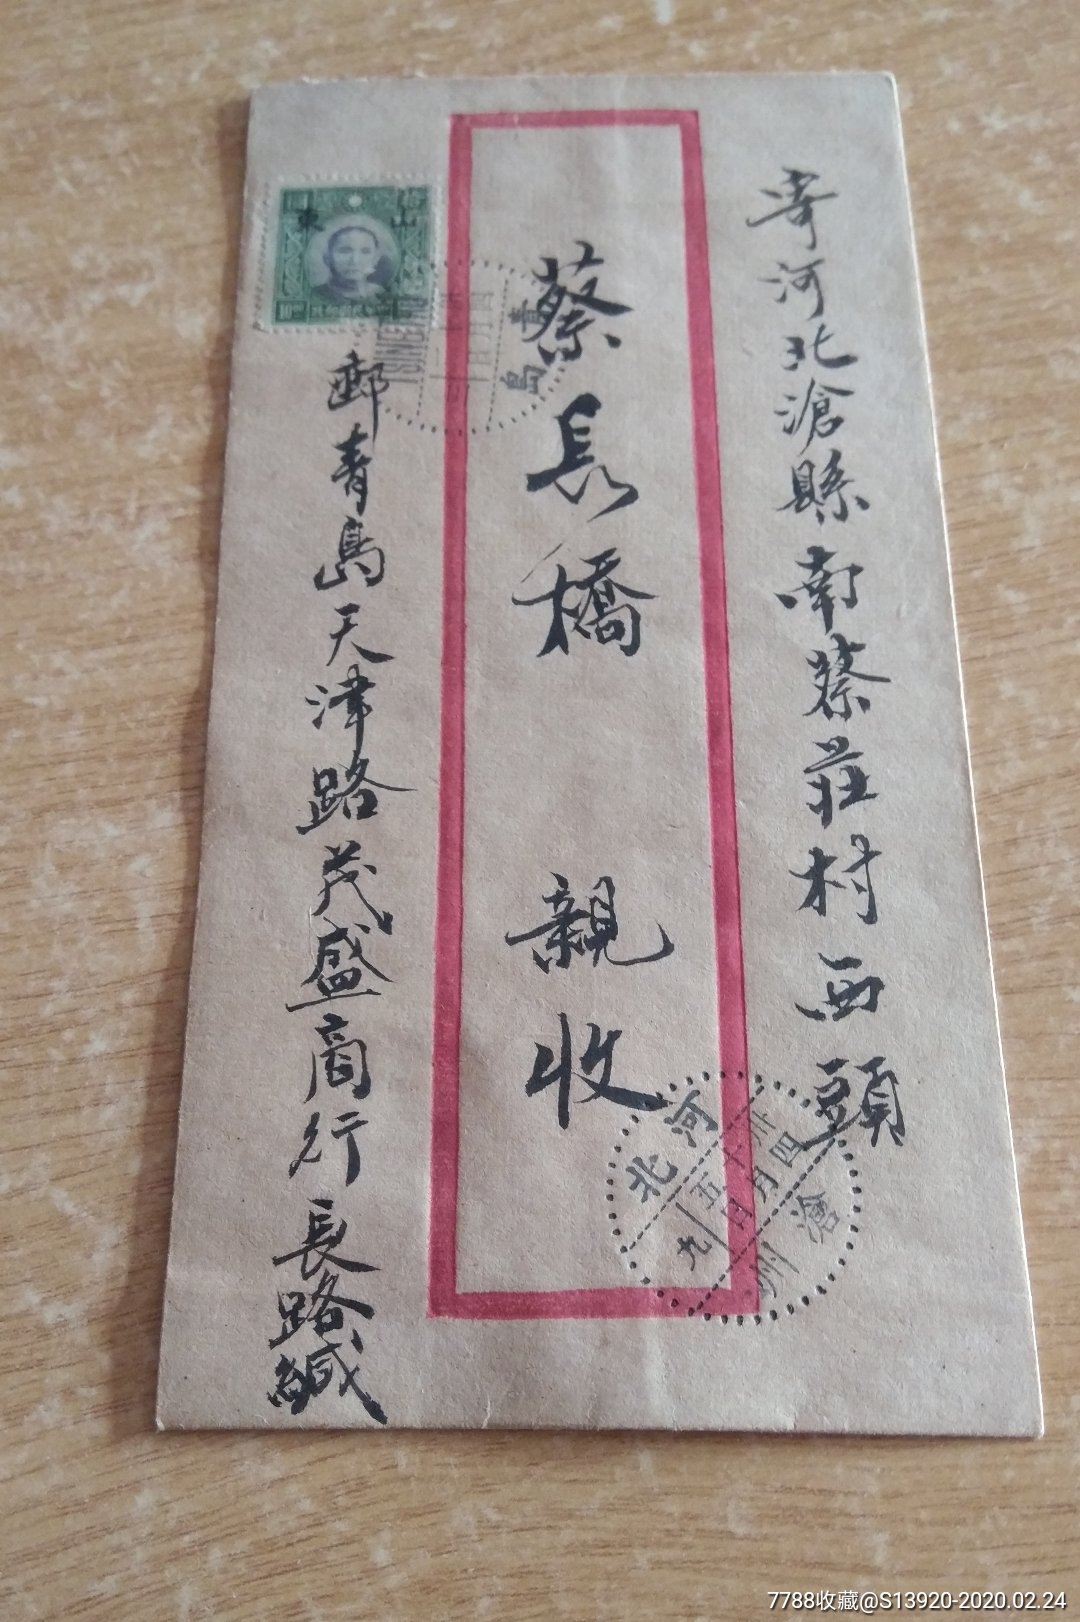 寄河北滄縣南蔡莊村西頭
蔡長橋 親收
郵青島天津路茂盛商行長路緘
山東
10
青島
TSINGTAO
河北
卅
十四月
五日
九
滄州
7788收藏@S13920-2020.02.24